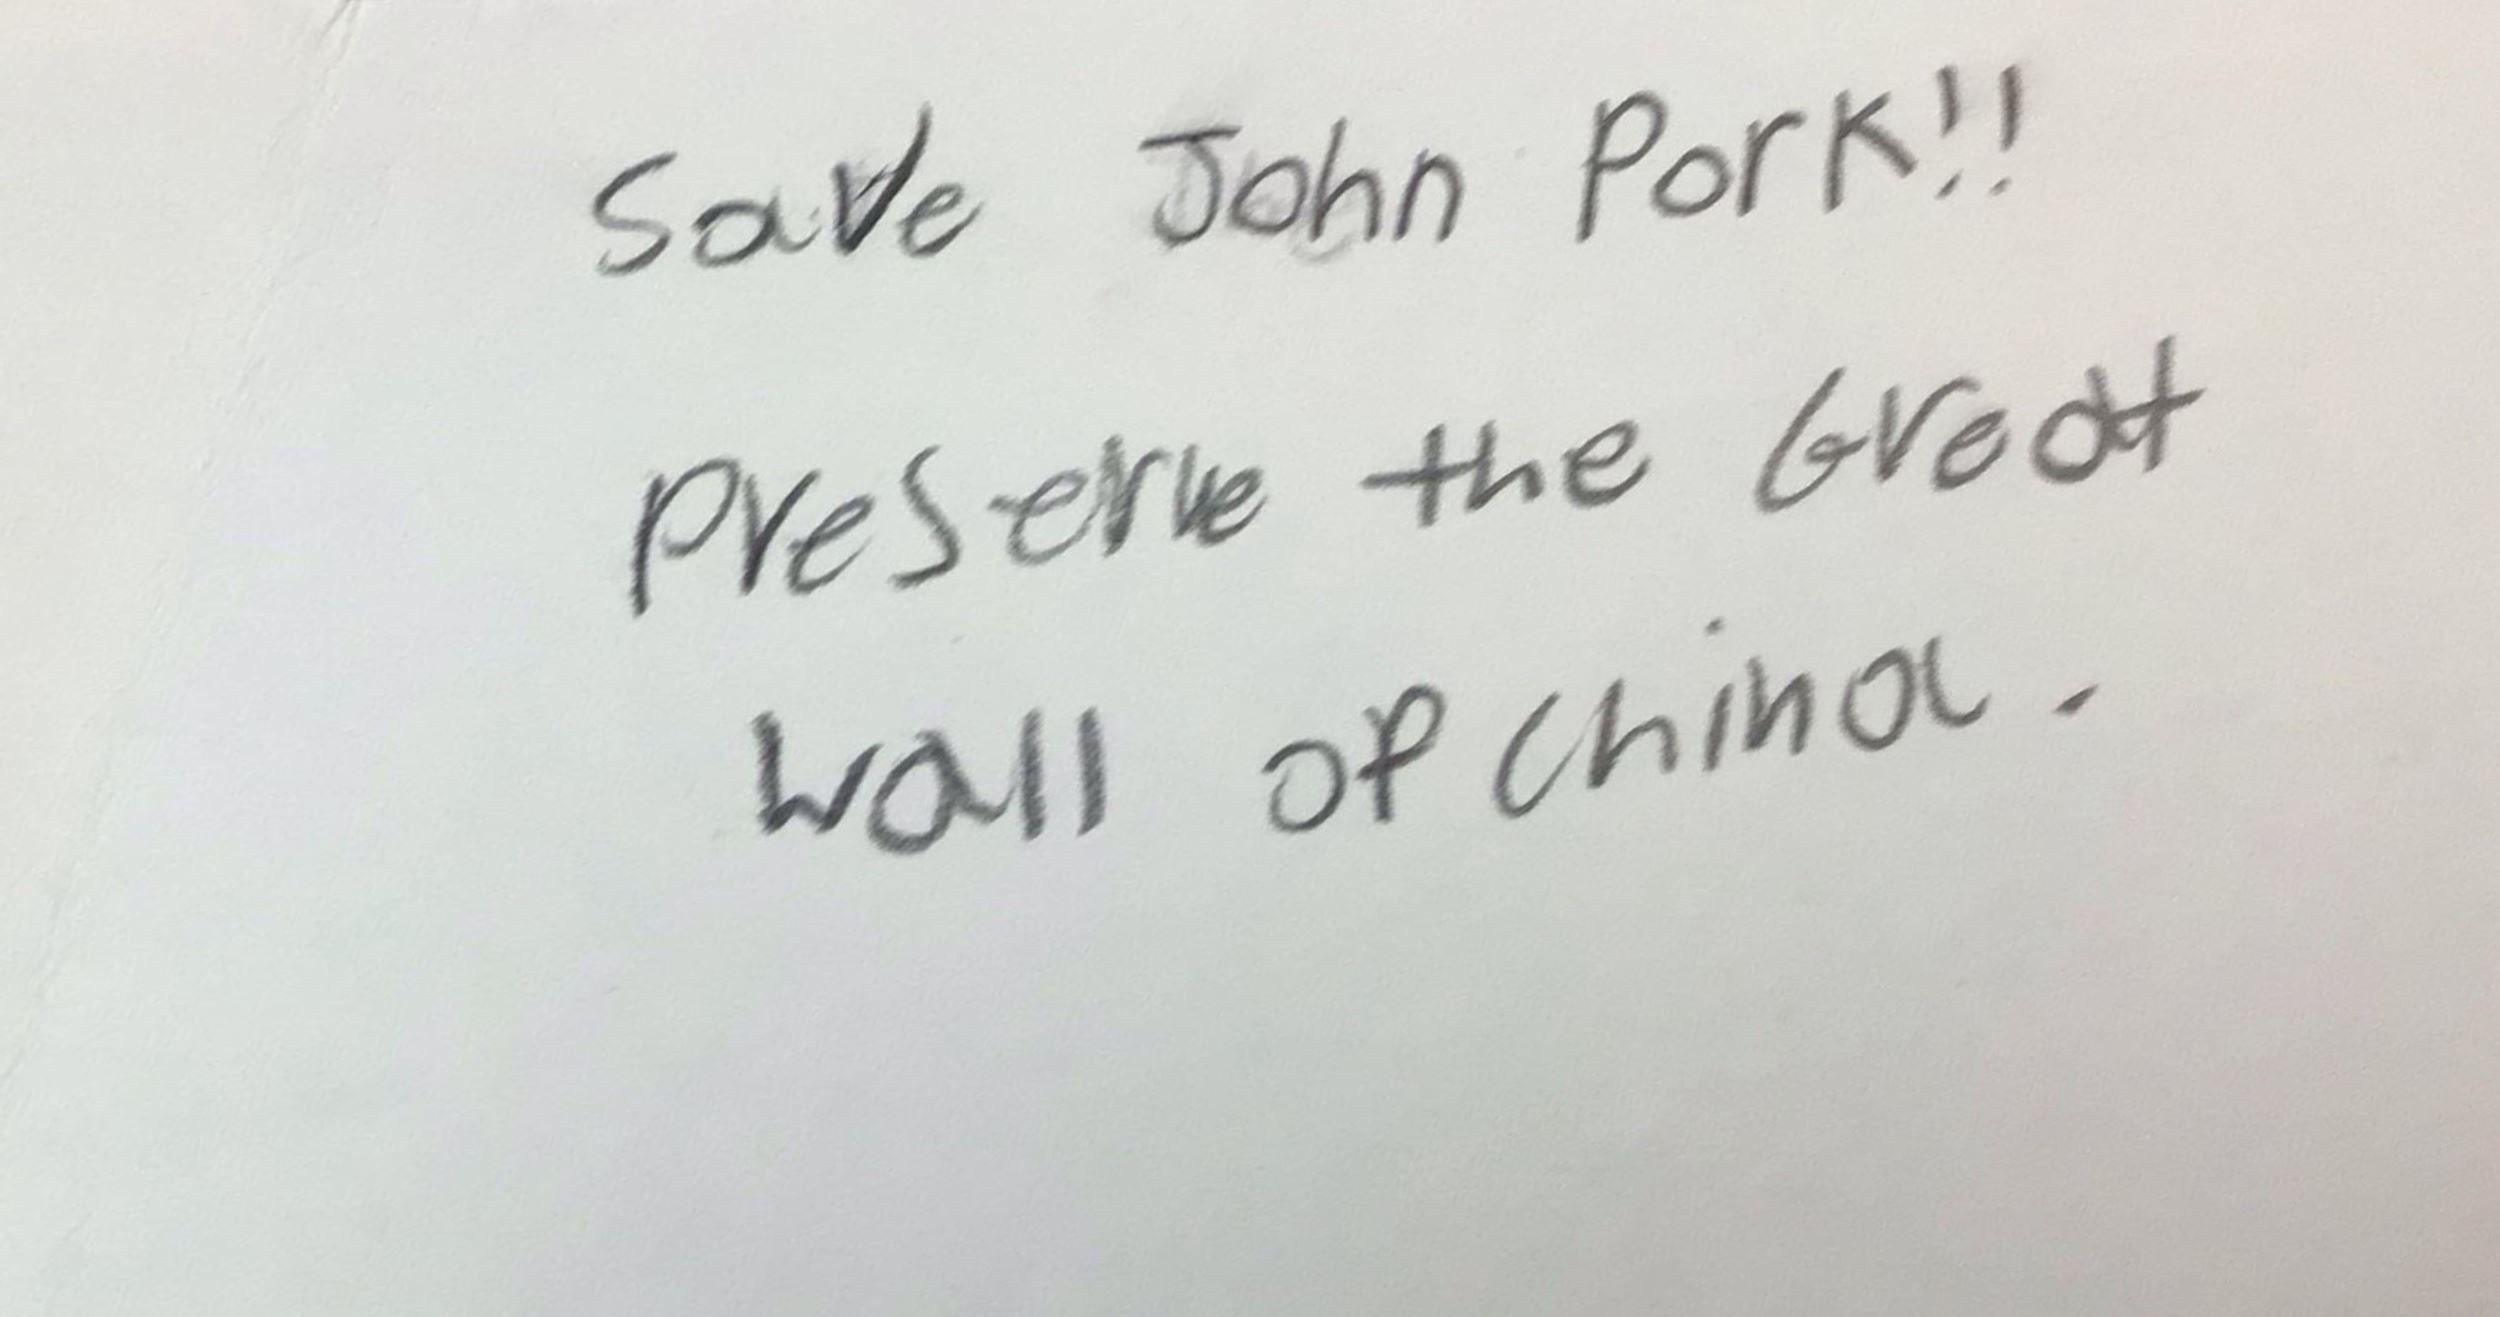 Save John Pork!!
Preserve the Great
Wall of China.